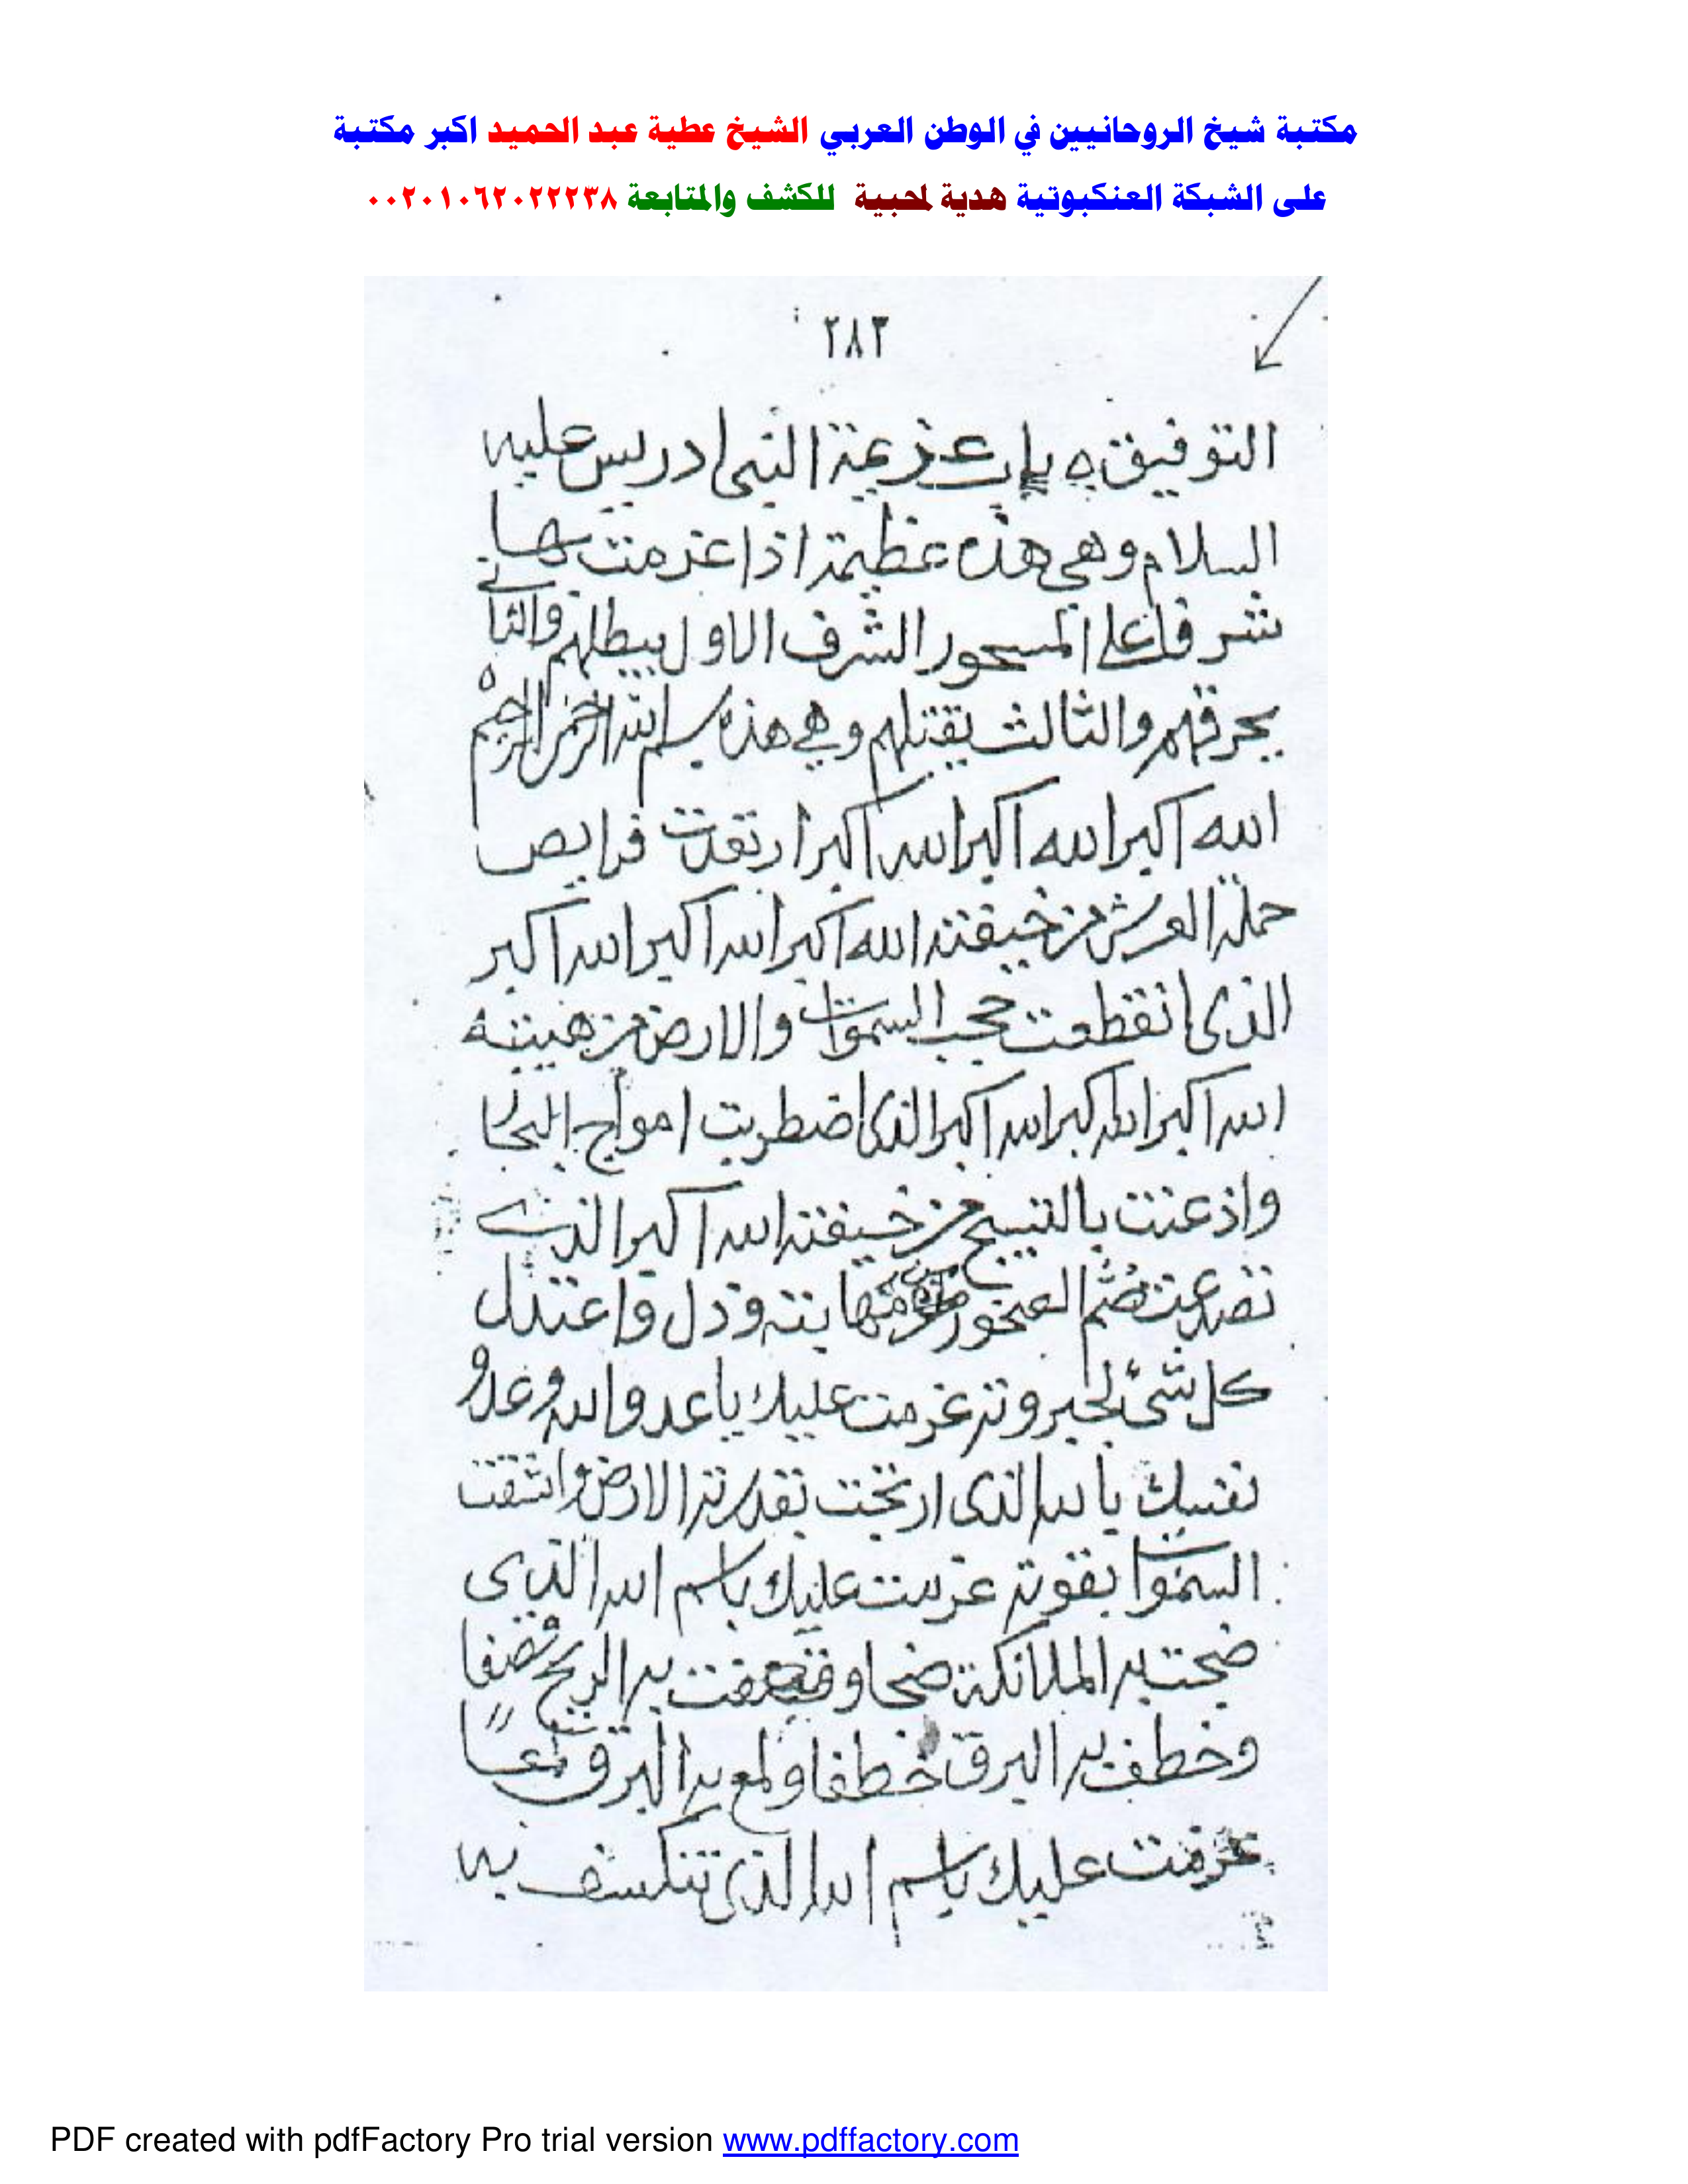 مكتبة شيخ الروحانيين في الوطن العربي الشيخ عطية عبد الحميد اكبر مكتبة
على الشبكة العنكبوتية هدية لمحبية للكشف والمتابعة ٠٠٢٠١٠٦٢٠٢٢٢٣٨
٢٨٣
التوفيق ه باب عزيمة النبى ادريس عليه
السلام وهى هذه عظيمة اذا عزمت بها
شرفا على المسحور الشرف الاول يبطلهم والثانى
يحرقهم والثالث يقتلهم وهى هذه بسم الله الرحمن الرحيم
الله اكبر الله اكبر الله اكبر ارتعدت فرايص
حملة العرش من خيفته الله اكبر الله اكبر الله اكبر
الذى انقطعت حجب السموات والارض من هيبته
الله اكبر الله اكبر الله اكبر الذى اضطربت امواج البحار
واذعنت بالتسبيح من خيفته الله اكبر الذى
تصدعت صم الصخور من مهابته وذل واعتدل
كل شئ لجبروته عزمت عليك يا عدو الله وعدو
نفسك بالله الذى ارتجت بقدرته الارض وانشقت
السموات بقوته عزمت عليك باسم الله الذى
ضجت به الملائكة ضجا وقصفت به الريح قصفا
وخطف به البرق خطفا ولمع به البرق لمعا
عزمت عليك باسم الله الذى تنكسف به
PDF created with pdfFactory Pro trial version www.pdffactory.com